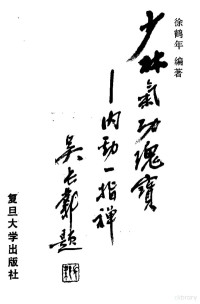 徐鹤年 编著
少林氣功瑰寶
—内劲一指禅
吴长新题
复旦大学出版社